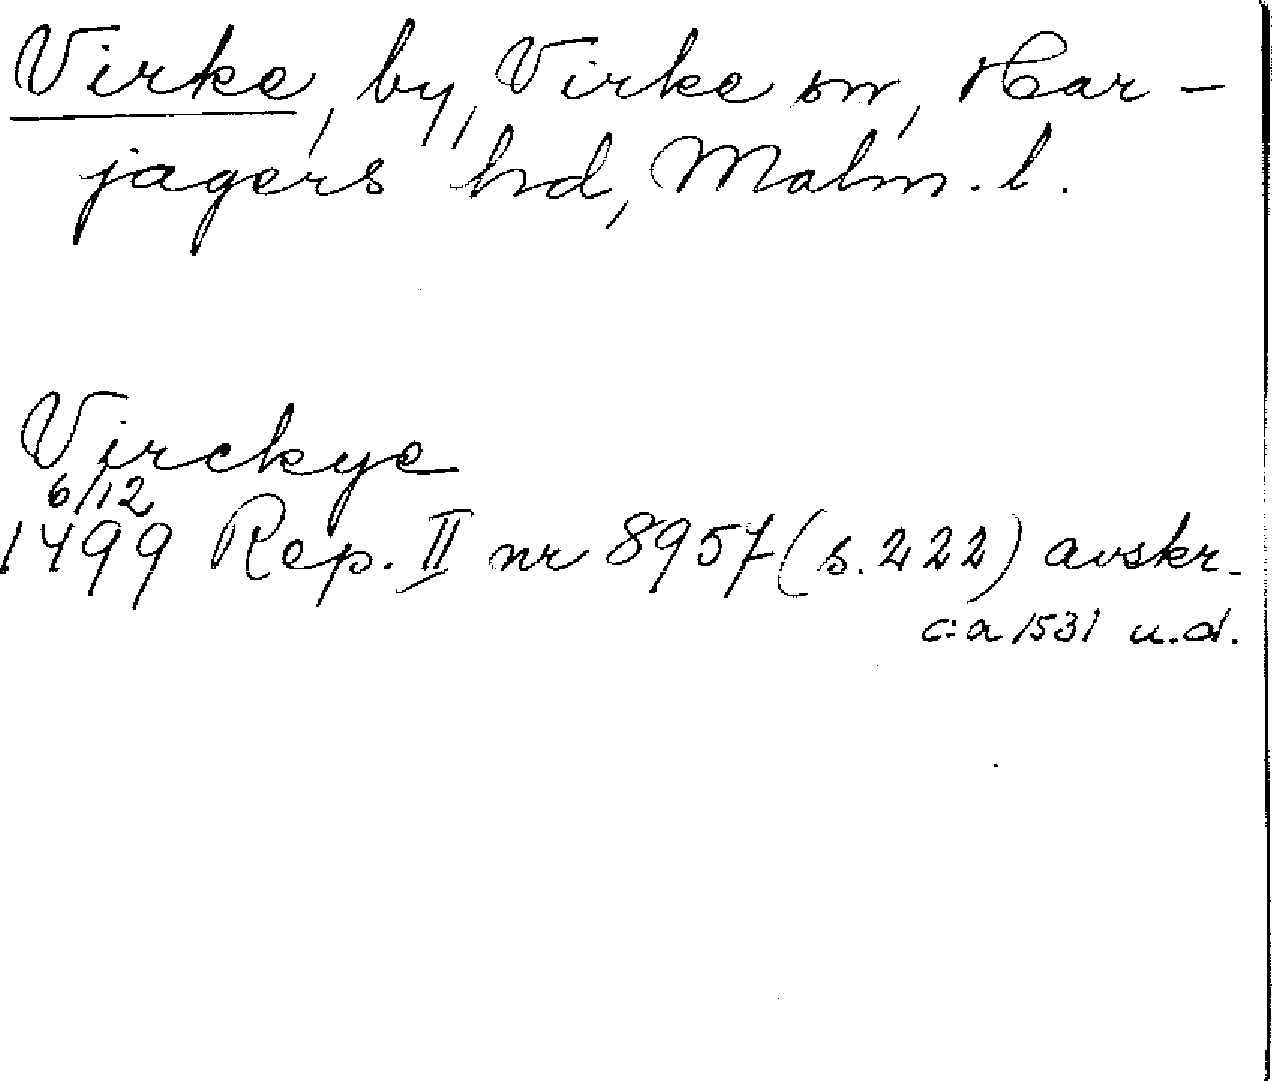 Virke, by, Virke sn, Har-
jagers hd, Malm. l.
Virckye
6/12
1499 Rep. II nr 8957 (s. 222) avskr.
c:a 1531 u.d.